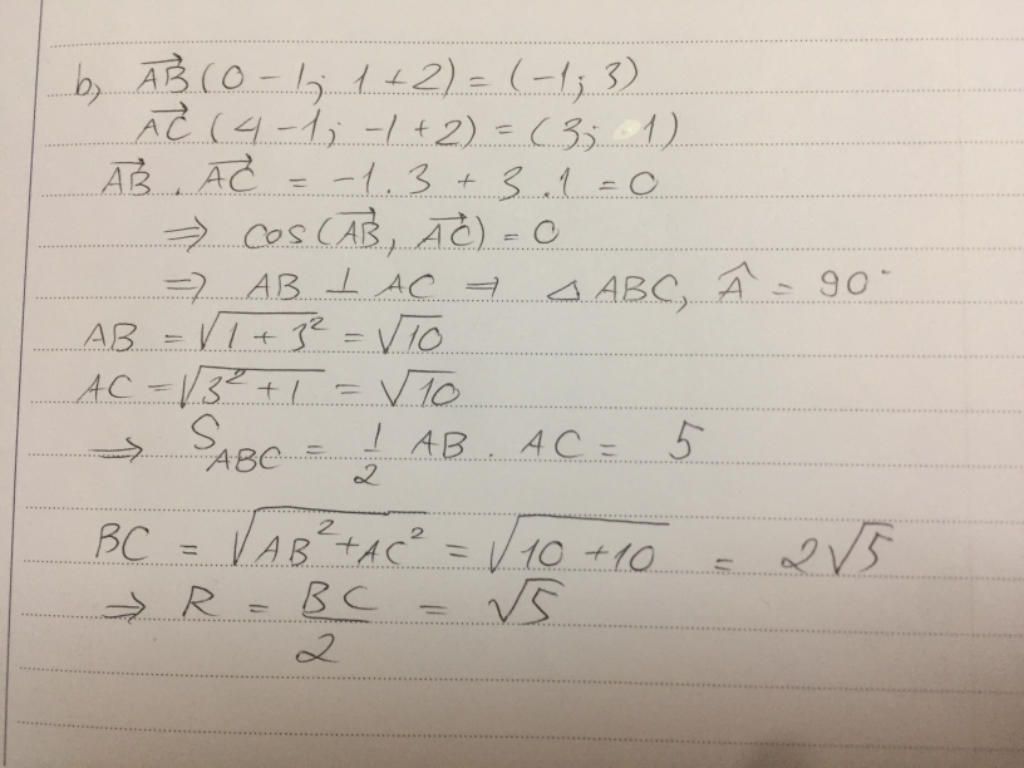 b) $\overrightarrow{AB}$ (0 - 1; 1 + 2) = (-1; 3)
$\overrightarrow{AC}$ (4 - 1; -1 + 2) = (3; 1)
$\overrightarrow{AB}$ . $\overrightarrow{AC}$ = -1 . 3 + 3 . 1 = 0
⇒ cos($\overrightarrow{AB}$, $\overrightarrow{AC}$) = 0
⇒ AB ⊥ AC ⇒ △ ABC, $\widehat{A}$ = 90°
AB = $\sqrt{1 + 3^2}$ = $\sqrt{10}$
AC = $\sqrt{3^2 + 1}$ = $\sqrt{10}$
⇒ $S_{ABC}$ = $\frac{1}{2}$ AB . AC = 5
BC = $\sqrt{AB^2 + AC^2}$ = $\sqrt{10 + 10}$ = 2$\sqrt{5}$
⇒ R = $\frac{BC}{2}$ = $\sqrt{5}$